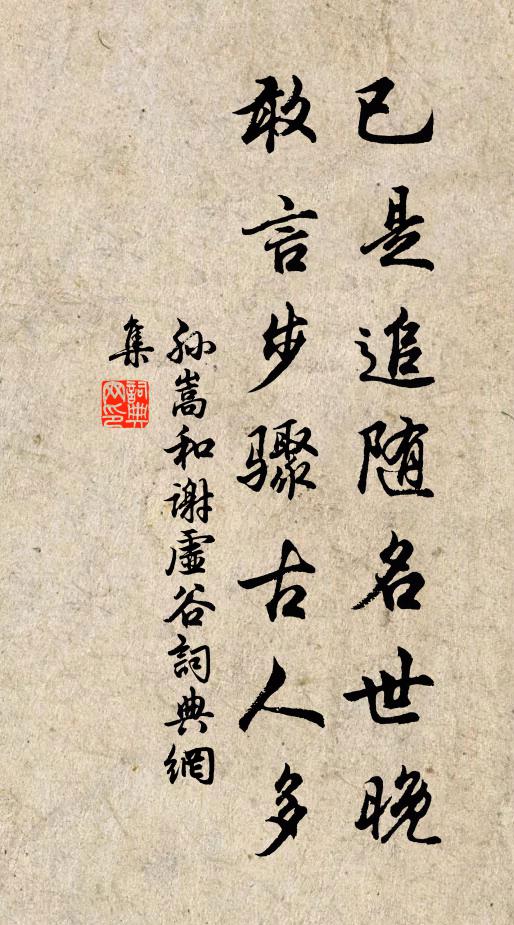 已是追随名世晚
敢言步驟古人多
孙嵩和谢虚谷詞典網
集
詞典
网印